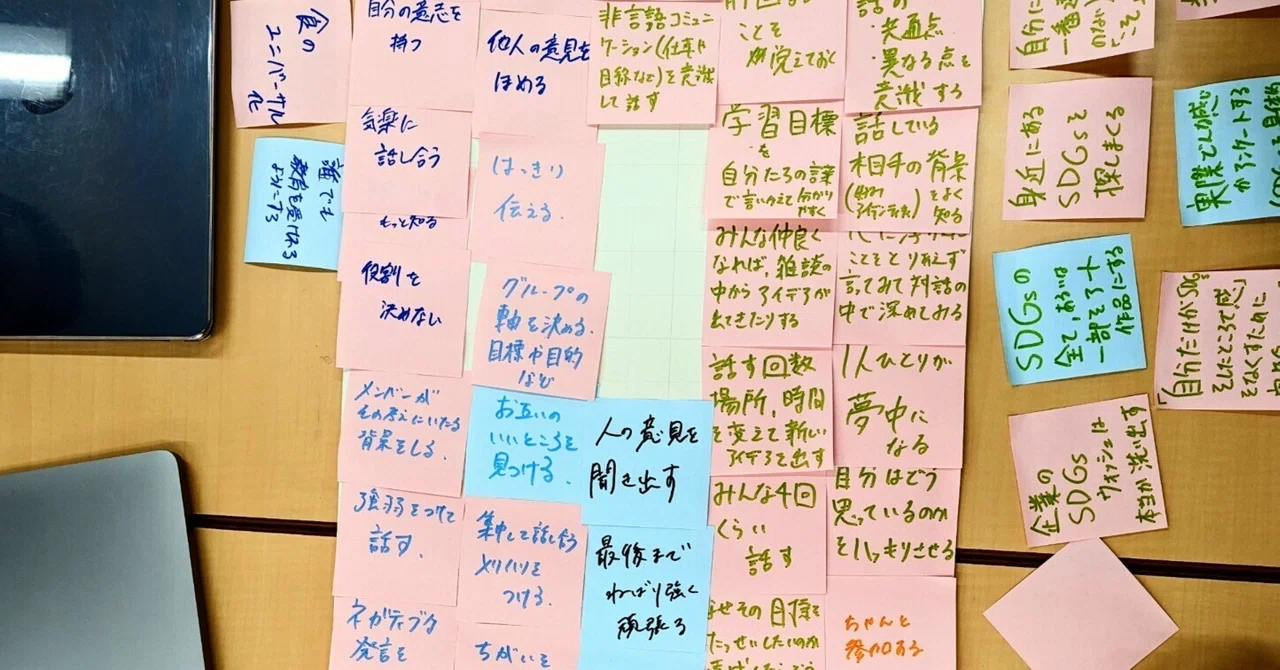 食の
ユニバーサル
化
誰でも
教育を受けれる
ようにする
自分の意志を
持つ
気楽に
話し合う
もっと知る
役割を
決めない
メンバーが
その考えにいたる
背景をしる。
強弱をつけて
話す。
ネガティブな
発言を
他人の意見を
ほめる
はっきり
伝える。
グループの
軸を決める。
目標や目的
など
お互いの
いいところを
見つける。
集中して話し合う
メリハリを
つける。
ちがいを
非言語コミュニ
ケーション(仕草や
目線など)を意識
して話す
人の意見を
聞き出す
最後まで
ねばり強く
頑張る
ことを
覚えておく
学習目標
を
自分たちの課
で言いかえて分かり
やすく
みんな仲良く
なれば、雑談の
中からアイデアが
出てきたりする
話す回数
場所、時間
を変えて新しい
アイデアを出す
みんな4回
くらい
話す
なぜその目標を
たっせいしたいのか
話の
・共通点
・異なる点を
意識する
話している
相手の背景
をよく
知る
ことをとりあえず
言ってみて対話の
中で深めてみる
1人ひとりが
夢中に
なる
自分はどう
思っているのか
をはっきりさせる
ちゃんと
参加する
自分に
一番
身近にある
SDGsを
探しまくる
SDGsの
全て、あるいは
一部をアート
作品にする
企業の
SDGs
ウォッシュは
本当か洗い出す
実際でどう感じ
かアンケートする
「自分だけがSDGs